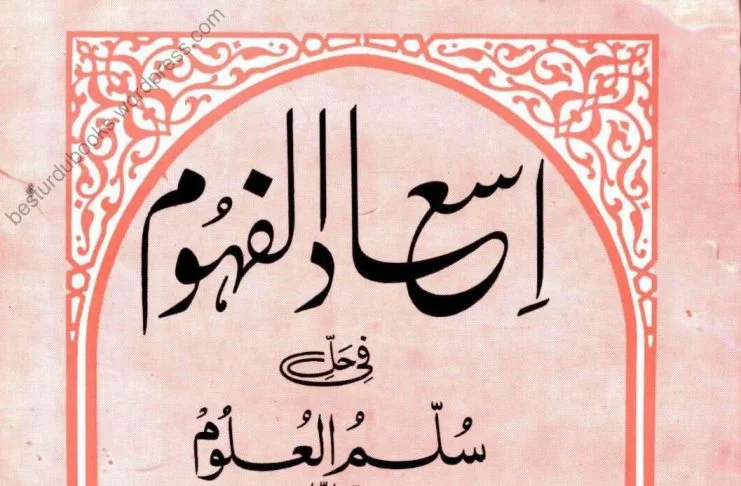 besturdubooks.wordpress.com
اِسعاد الفہُوم
فِی حَلِّ
سُلّمُ العُلُومُ